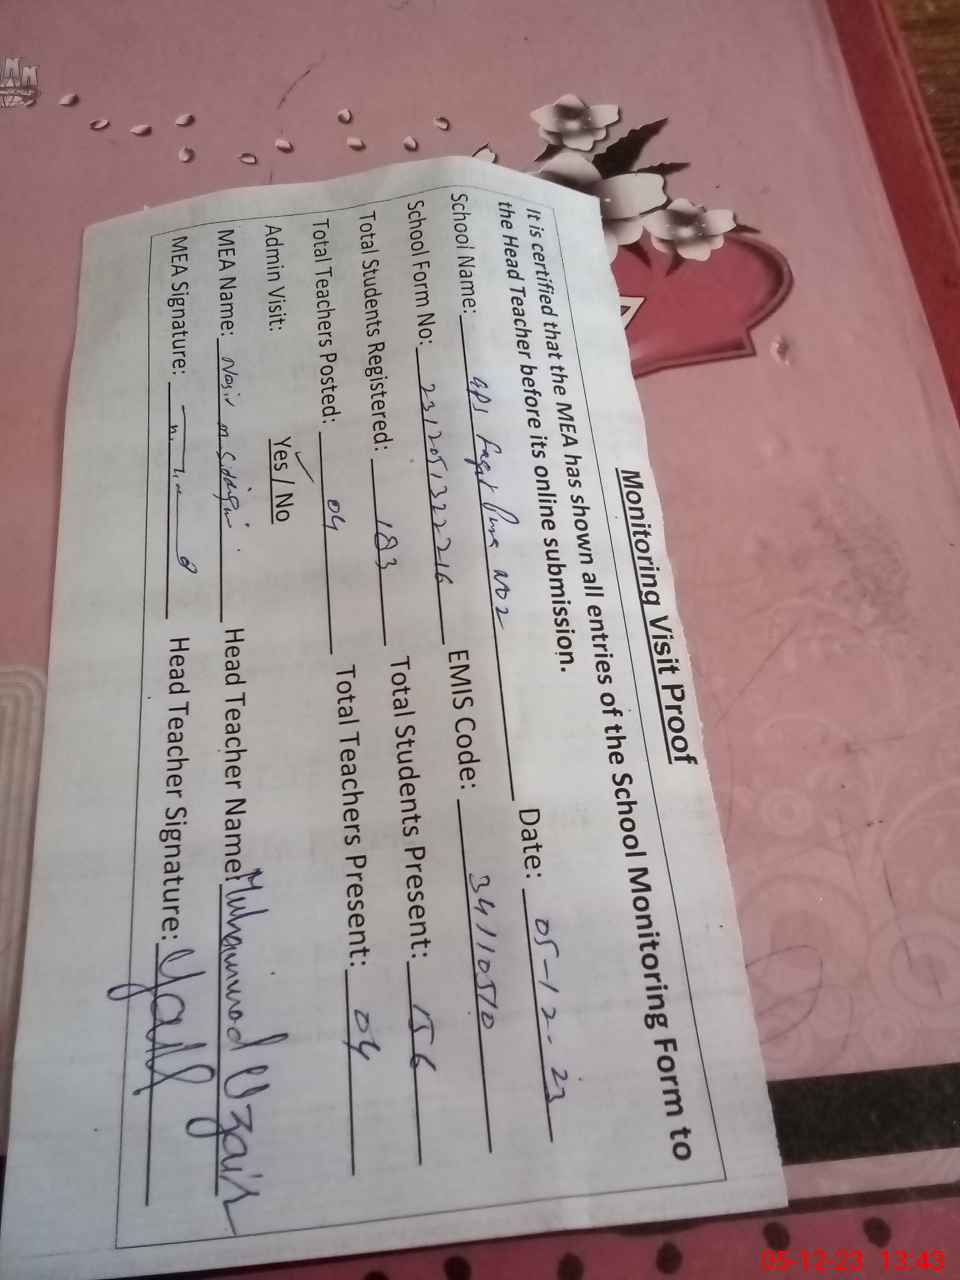 Monitoring Visit Proof
It is certified that the MEA has shown all entries of the School Monitoring Form to
the Head Teacher before its online submission.
Date: 05-12-23
School Name: GPS Pura NO2
School Form No: 231205132216 EMIS Code: 34110510
Total Students Registered: 183 Total Students Present: 156
Total Teachers Posted: 04 Total Teachers Present: 04
Admin Visit: Yes / No
MEA Name: Nasir m Head Teacher Name: Muhammad Uzair
MEA Signature: Head Teacher Signature:
05-12-23 13:43